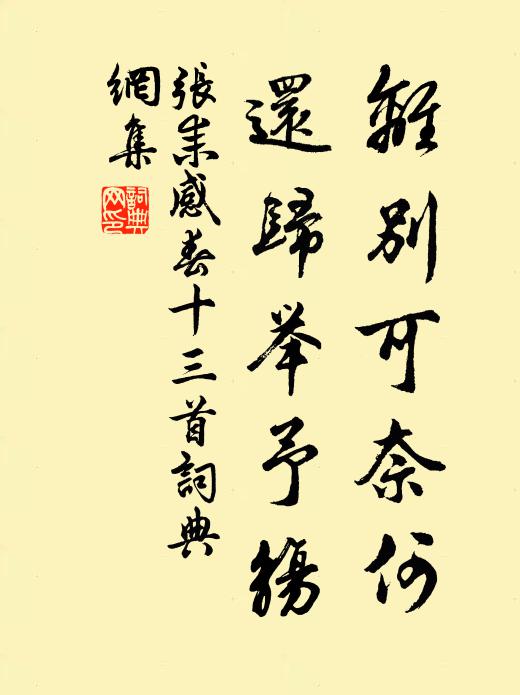 離別可奈何
還歸舉予觴
張耒感春十三首詞典
網集
詞典
网印